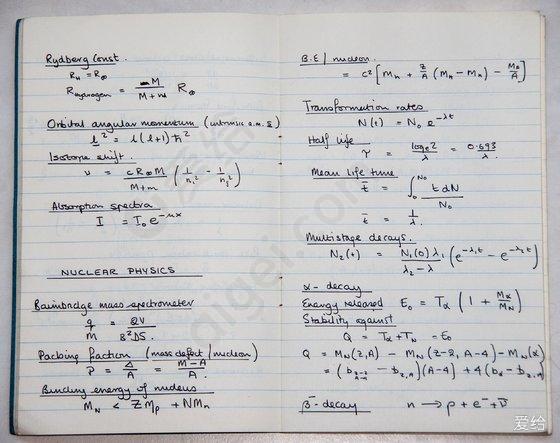 Rydberg Const.
R_H = R_∞
R_Hydrogen = M / (M + m) R_∞
Orbital angular momentum (intrinsic a.m. s)
l² = l(l+1) ħ²
Isotope shift.
ν = cR_∞M / (M+m) (1/n_i² - 1/n_j²)
Absorption spectra
I = I₀ e^(-μx)
NUCLEAR PHYSICS
Bainbadge mass spectrometer
q/M = 2V / B²DS.
Packing fraction (mass defect/nucleon)
P = Δ/A = (M-A)/A.
Binding energy of nucleus
M_N < ZM_p + NM_n
B.E / nucleon.
= c² [M_n + Z/A (M_H - M_n) - M_A/A]
Transformation rates
N(t) = N₀ e^(-λt)
Half life
τ = log_e 2 / λ = 0.693 / λ.
Mean life time
t̄ = ∫₀^N₀ t dN / N₀
t̄ = 1/λ.
Multistage decays.
N₂(t) = N₁(0) λ₁ / (λ₂ - λ) (e^(-λ₁t) - e^(-λ₂t))
α-decay
Energy released E₀ = T_α (1 + M_α/M_N)
Stability against
Q = T_α + T_N = E₀
Q = M_N(Z,A) - M_N(Z-2, A-4) - M_N(α)
= (b_(Z-2,A-4) - b_(Z,A))(A-4) + 4(b_α - b_(Z,A))
β⁻-decay n → p + e⁻ + ν̄
爱给